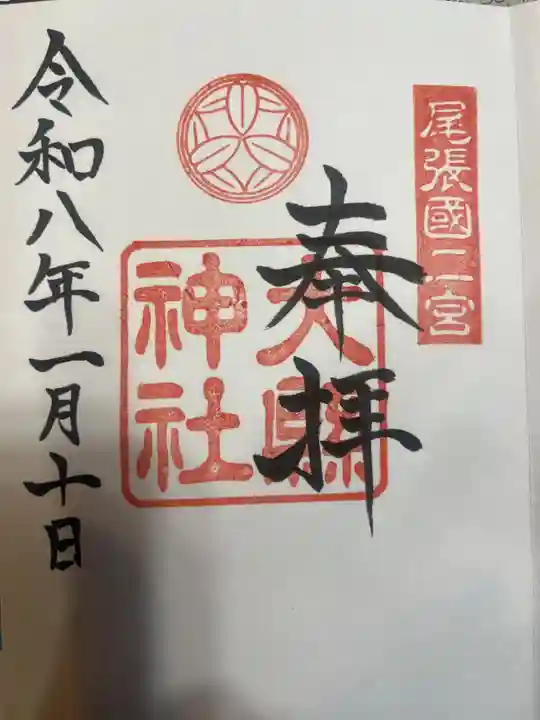 尾張國二宮
奉拝
大縣神社
令和八年一月十日